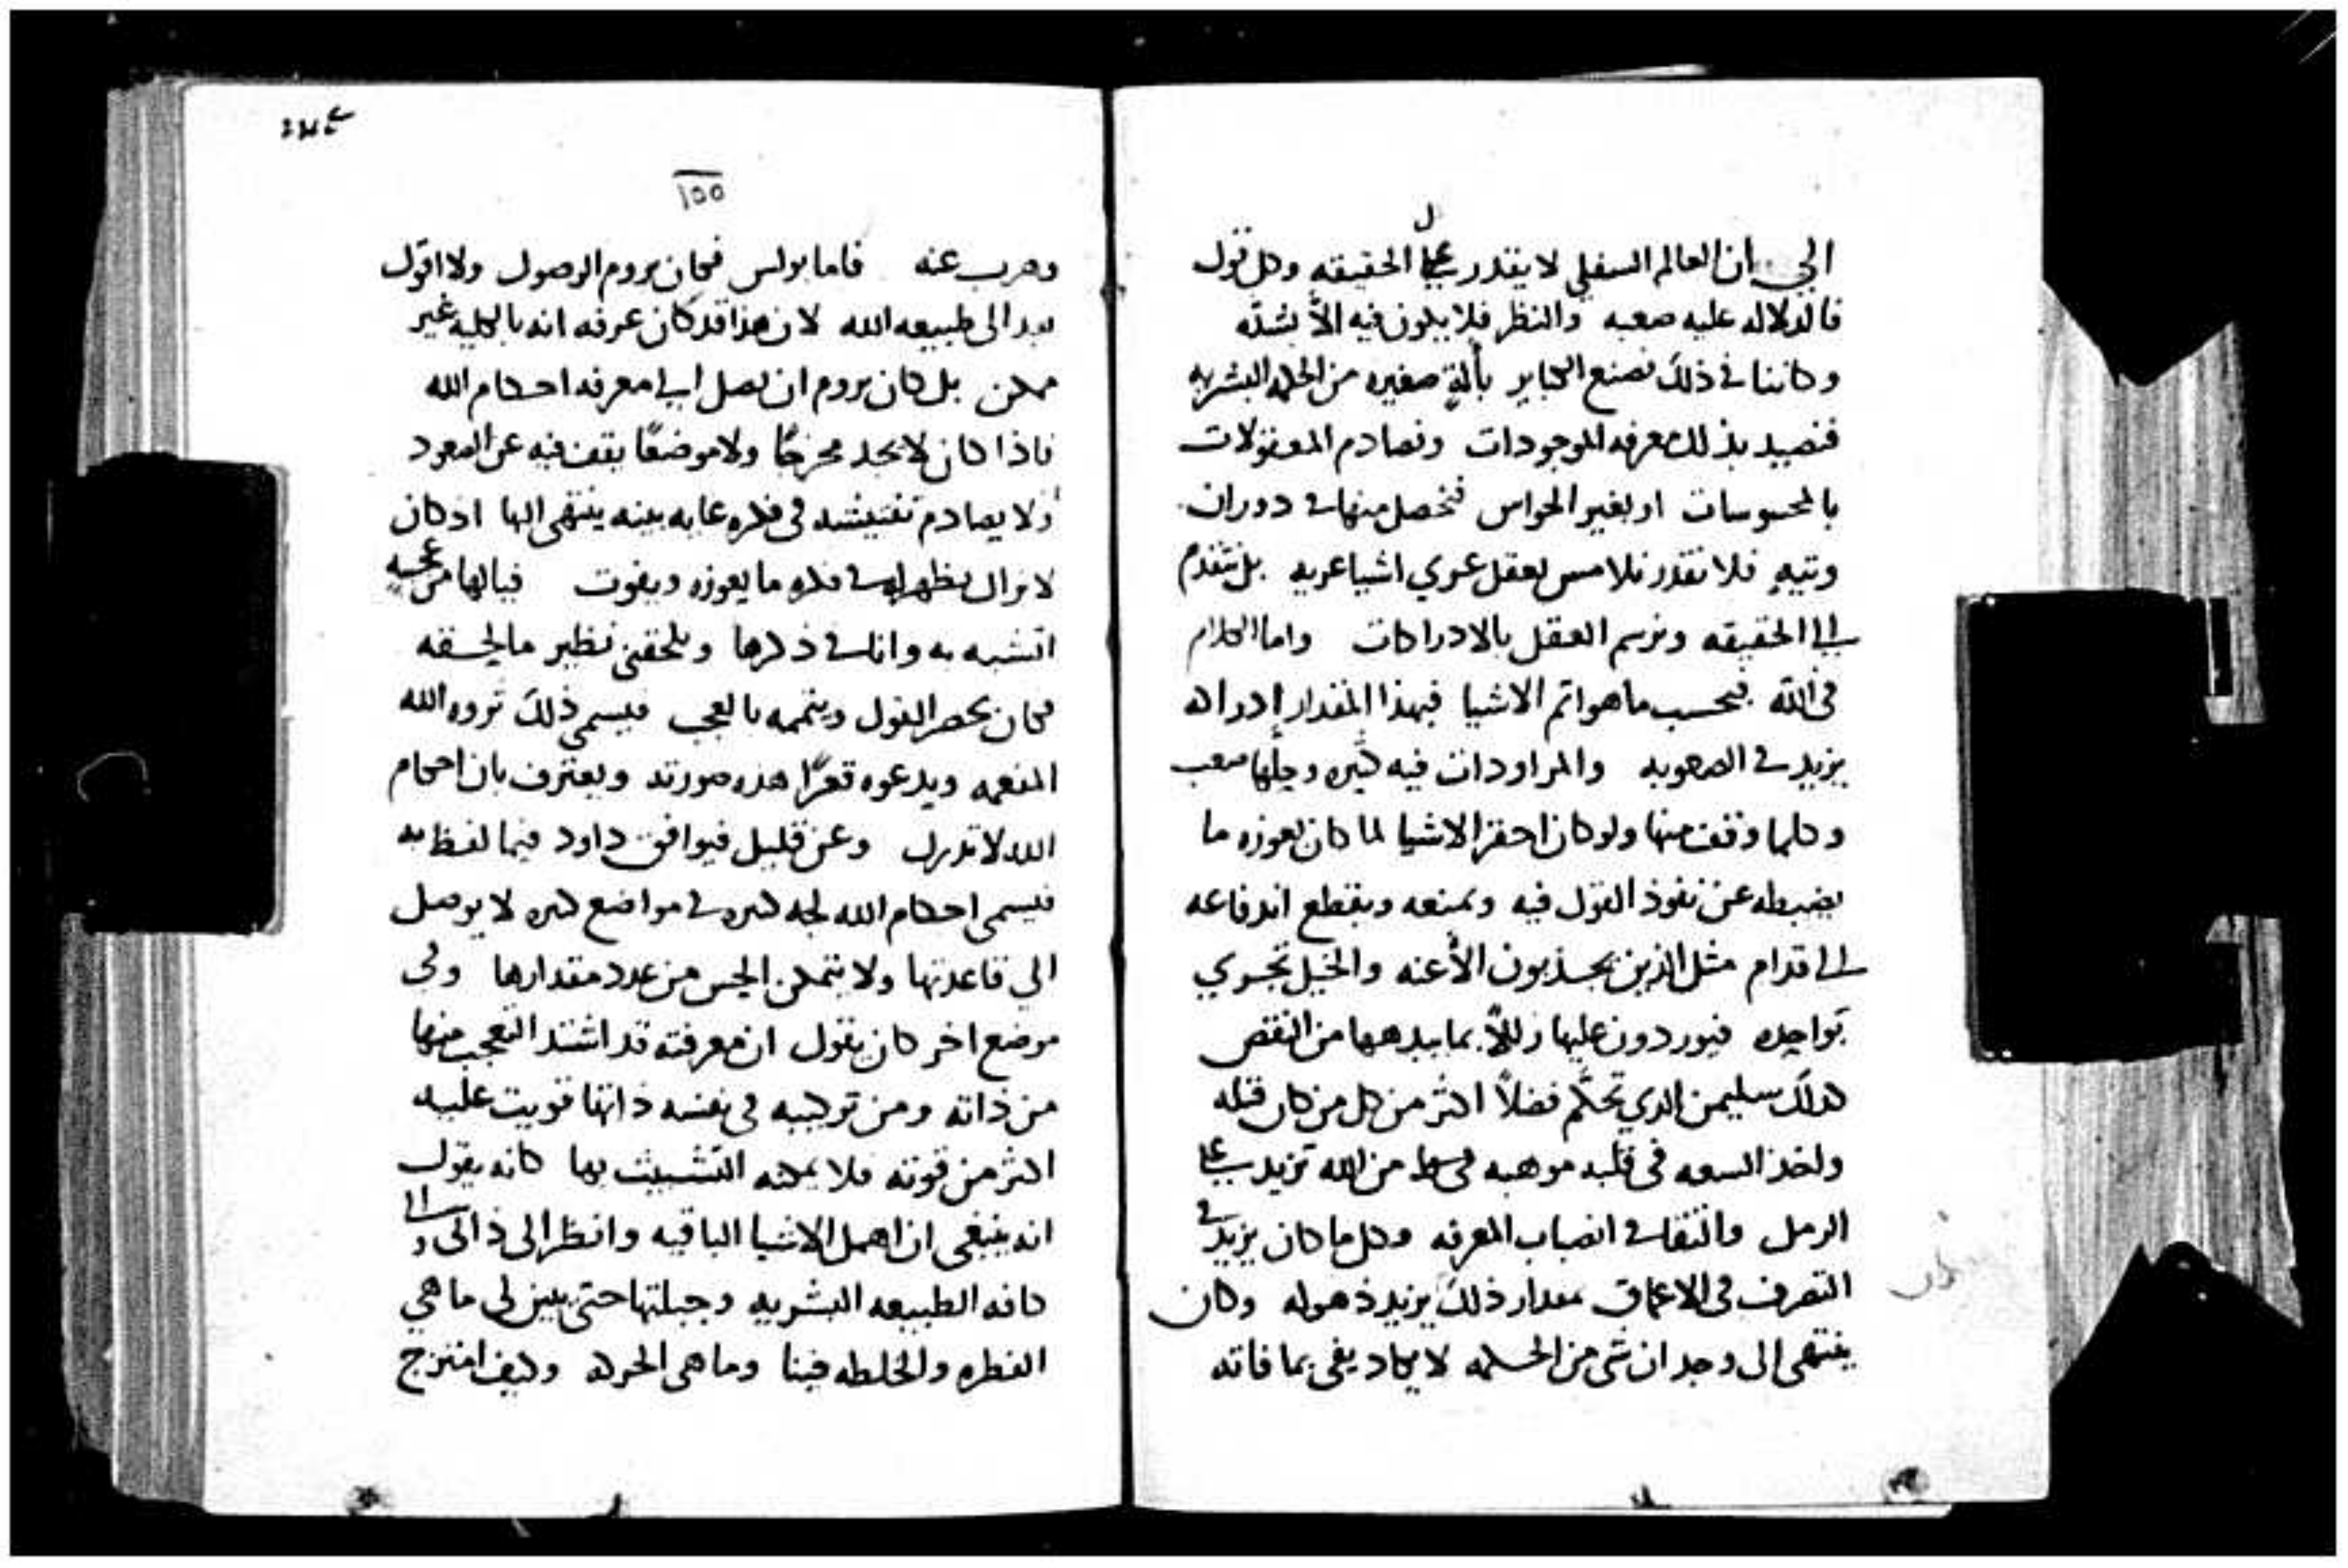 الى ان العالم السفلي لا يقدر على الحقيقه وكل قول
فالدلاله عليه صعبه والنظر فلا يكون فيه الاّ بشدّه
وكاننا في ذلك نصنع الكباير بألةٍ صغيره من الحكمه البشريه
فنصيد بذلك معرفه الموجودات ونصادم المعقولات
بالمحسوسات او بغير الحواس فنحصل منها في دوران
وتيهٍ فلا نقدر نلامس بعقل عري اشيا عريه بل نتقدم
الى الحقيقه ونرسم العقل بالادراكات واما الكلام
في الله فبحسب ما هو اتم الاشيا فبهذا المقدار إدراكه
يزيد في الصعوبه والمراودات فيه كثيره وحلها صعب
وكلما وقف منها ولو كان احقر الاشيا لما كان يعوزه ما
يضبطه عن نفوذ القول فيه ويمنعه ويقطع اندفاعه
الى قدام مثل الذين يجذبون الأعنه والخيل تجري
فيوردون عليها زللاً بما يدهمها من النقص
كذلك سليمن الذي تحكّم فضلاً اكثر من كل من كان قبله
واخذ السعه في قلبه موهبه من الله تزيد على
الرمل في انصباب المعرفه وكل ما كان يزيد في
التصرف في الاعماق بمقدار ذلك يزيد ذهوله وكان
ينتهي الى وجدان شي من الحكمه لا يكاد يفي بما فاته
١٥٥
وهرب عنه فاما بولس فكان يروم الوصول ولا اقول
الى طبيعه الله لان هذا قد كان عرفه انه بالكليه غير
ممكن بل كان يروم ان يصل الى معرفه احكام الله
فاذا كان لا يجد مخرجًا ولا موضعًا يقف فيه عن الصعود
ولا يصادم تفتيشه في فكره غايه بينه ينتهي اليها اذ كان
لا يزال يظهر له في فكره ما يعوزه ويفوت فيالها من عجيبه
اتشبه به وانا في ذكرها ويلحقني نظير ما لحقه
فكان يحصر القول ويتممه بالعجب فيسمي ذلك ثروه الله
ويدعوه قعرًا هذه صورته ويعترف بان احكام
الله لا تدرك وعن قليل فيوافق داود فيما لفظ به
فيسمي احكام الله لجه كثيره في مواضع كثيره لا يوصل
الى قاعدتها ولا يتمكن الحس من عدد مقدارها وفي
موضع اخر كان يقول ان معرفته قد اشتد التعجب منها
من ذاته ومن تركيبه في نفسه ذاتها قويت عليه
اكثر من قوته فلا يمكنه التشبيث بها كانه يقول
انه ينبغي ان اهمل الاشيا الباقيه وانظر الى ذاتي والى
كافه الطبيعه البشريه وجبلتها حتى يبين لي ما هي
الفطره والخلطه فينا وما هي الحركه وكيف امتزج